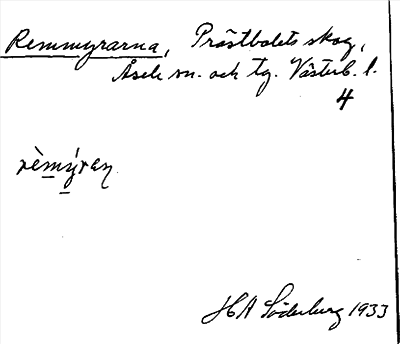 Remmyrarna, Prästbolets skog,
Åsele sn. och tg. Västerb. l.
4
rèmýran
HA Söderburg 1933